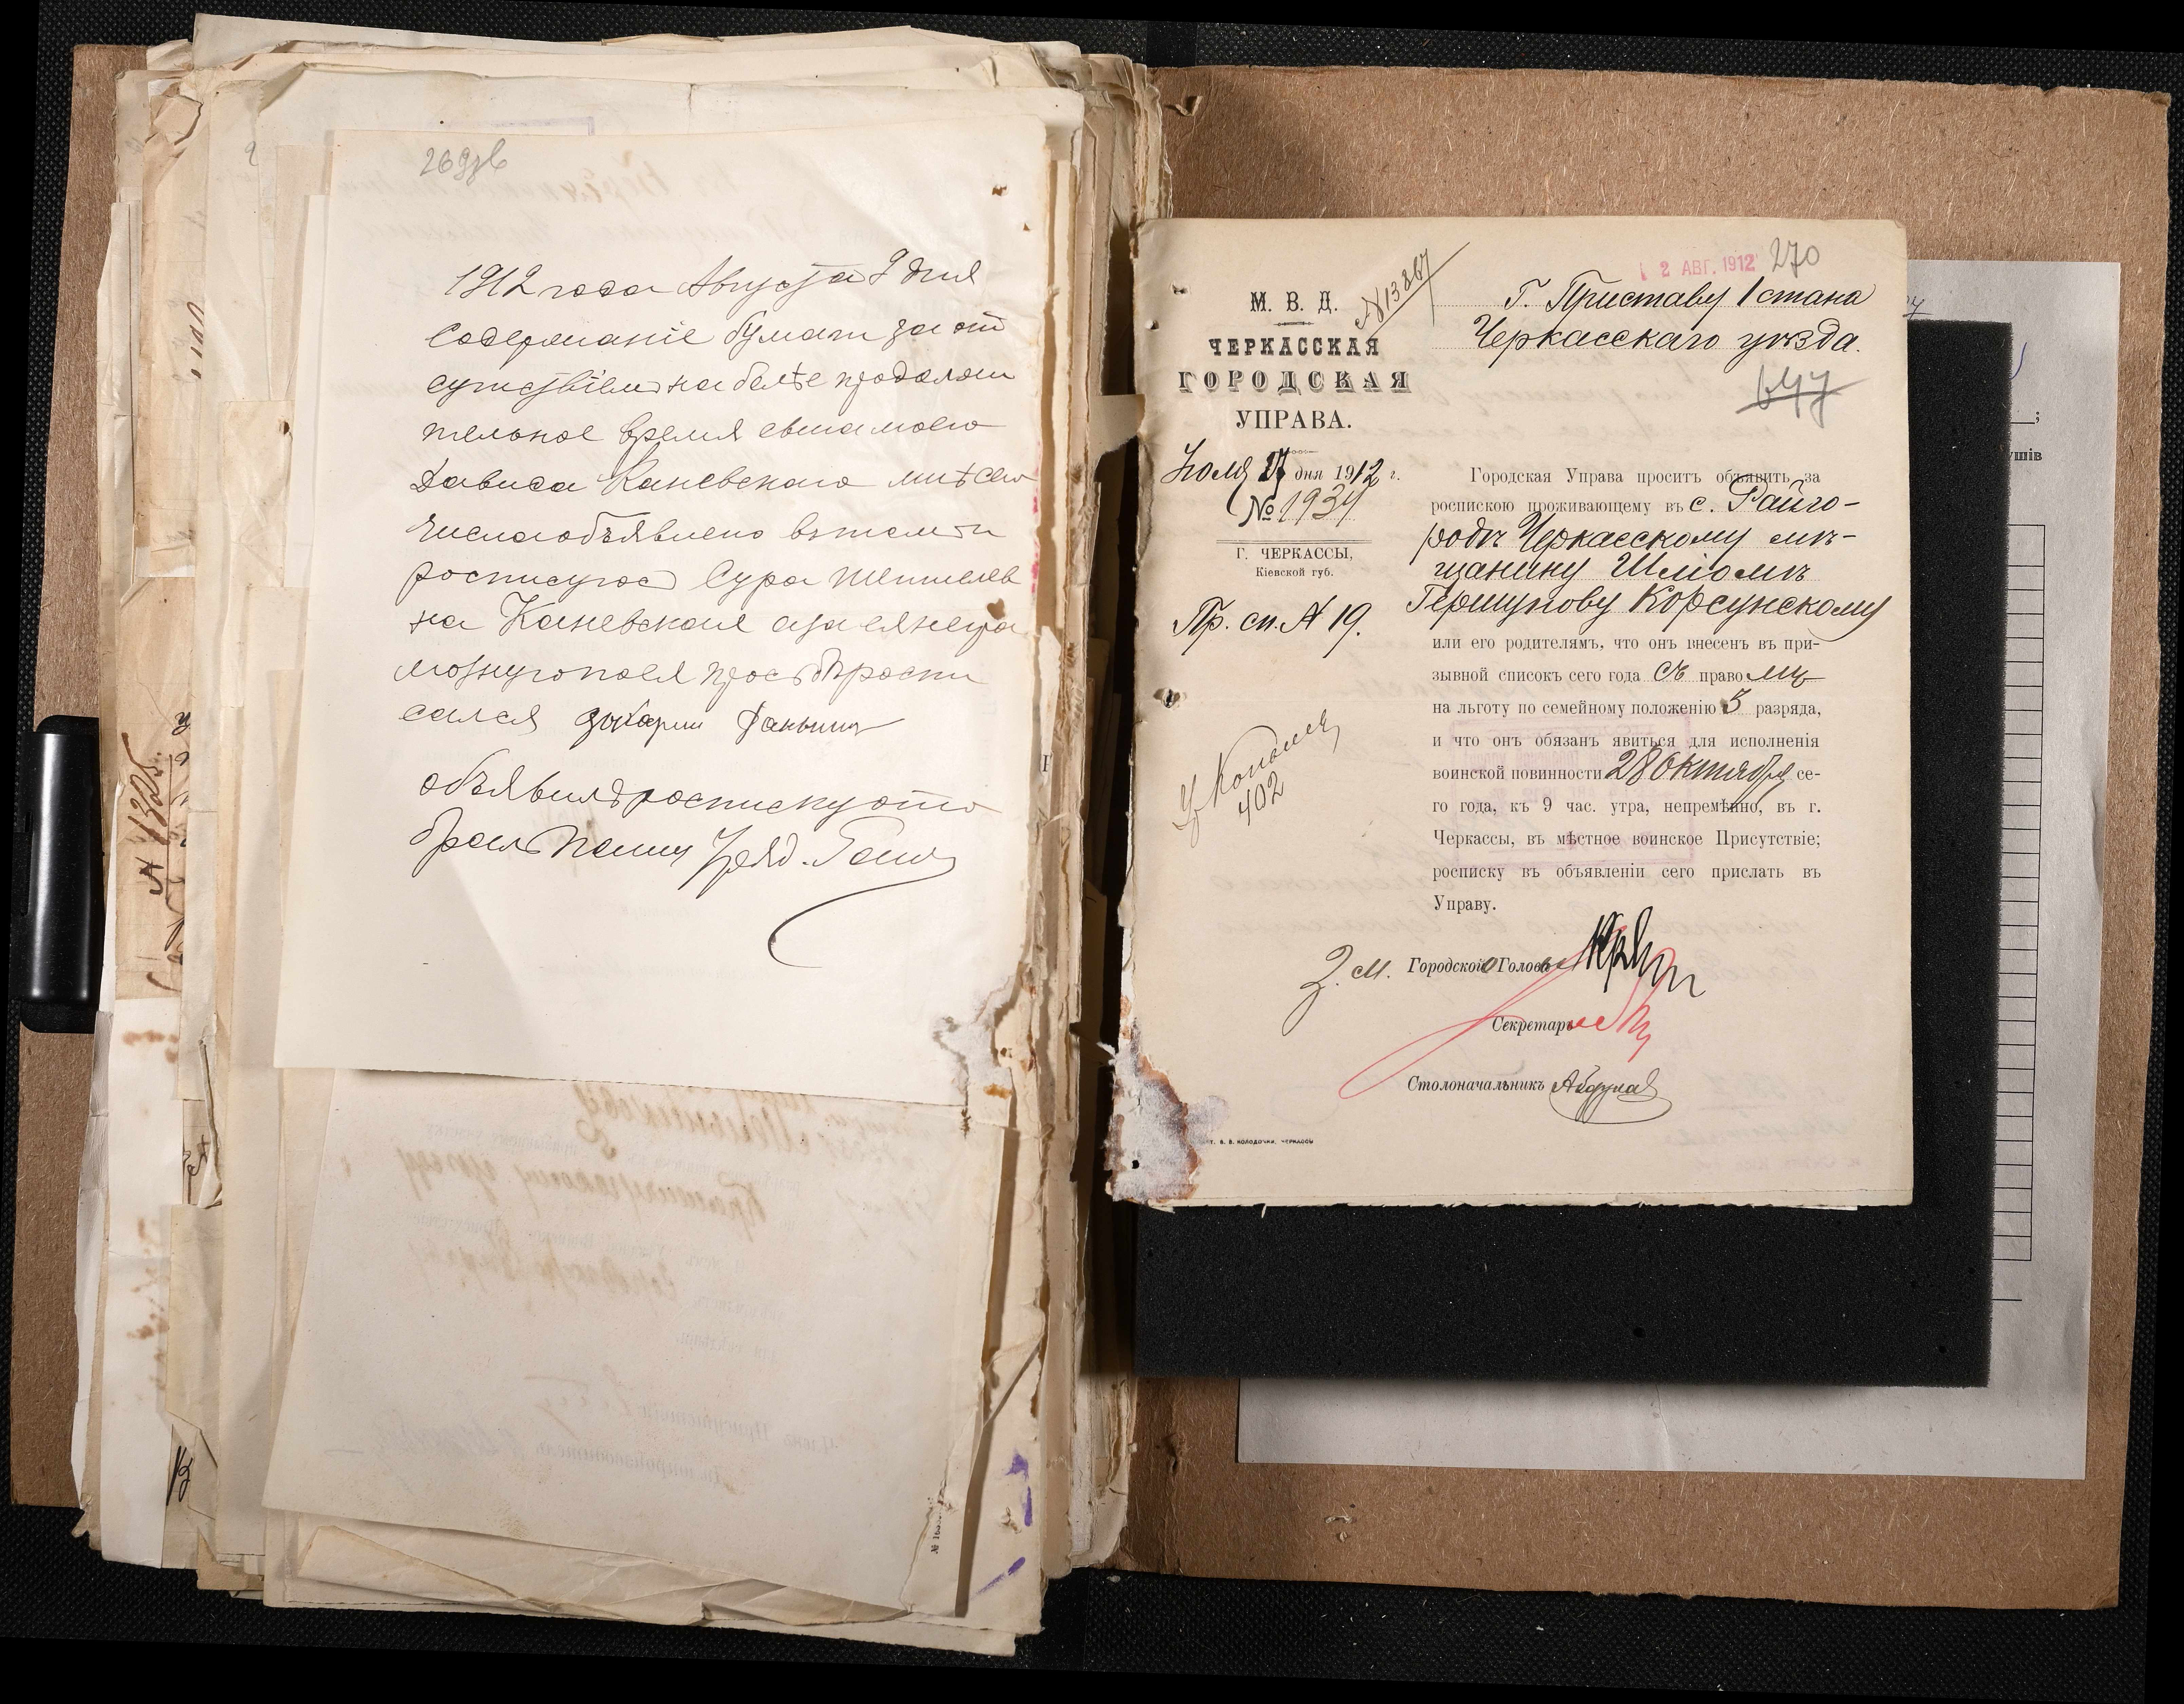 269зв
1912 года Августа 9 дня
Содержаніе бумаги за от
сутствіем на более продолжи
тельное время сына моего
Дависа Каневскаго мнѣ сего
числа объявлено въ томъ и
росписуюс Сура Шмилев
на Каневская а за ея негра
мотную по ея просьбѣ роспи
сался
объявилъ росписку ото
бралъ Полиц Уряд.
М. В. Д.
ЧЕРКАССКАЯ
ГОРОДСКАЯ
УПРАВА.
Іюля 27 дня 1912 г.
№ 1934
Г. ЧЕРКАССЫ,
Кіевской губ.
Пр. сп. № 19.
402
№13867
2 АВГ. 1912 270
Г. Приставу 1 стана
Черкасскаго уѣзда.
647
Городская Управа проситъ объявить за
роспискою проживающему въ с. Райго-
родѣ Черкасскому мѣ-
щанину Шліомѣ
Гершунову Корсунскому
или его родителямъ, что онъ внесенъ въ при-
зывной списокъ сего года съ правомъ
на льготу по семейному положенію 3 разряда,
и что онъ обязанъ явиться для исполненія
воинской повинности 28 Октября се-
го года, къ 9 час. утра, непремѣнно, въ г.
Черкассы, въ мѣстное воинское Присутствіе;
росписку въ объявленіи сего прислать въ
Управу.
З. м. Городского Головы
Секретарь
Столоначальникъ
Т. В. В. КОЛОДОЧКИ, ЧЕРКАССЫ
№ 1325.